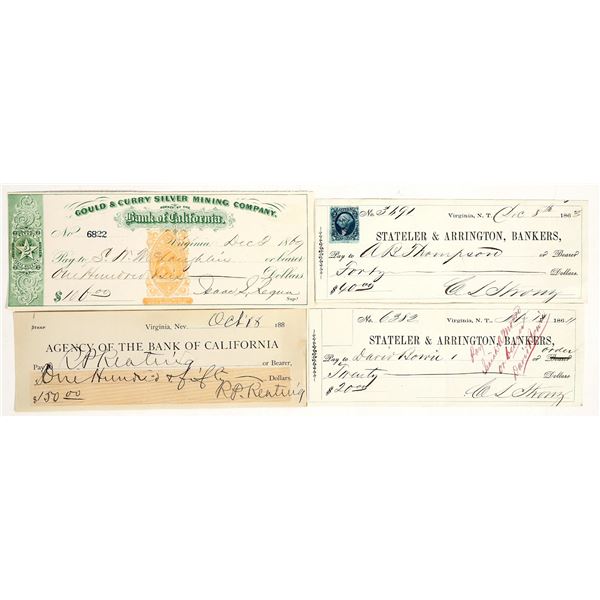 GOULD & CURRY SILVER MINING COMPANY.
Bank of California.
No. 6822
Virginia Dec 2 1869
Pay to S. W. McLaughlin or bearer
One Hundred Six Dollars
$106.00 Isaac L. Requa
Supt
No. 3491
Virginia, N. T. Dec 8th 186
STATELER & ARRINGTON, BANKERS,
Pay to A R Thompson or Bearer
Forty Dollars.
$40.00 C L Strong
STAMP Virginia, Nev. Oct 18 188
AGENCY OF THE BANK OF CALIFORNIA
Pay to R P Keating or Bearer,
One Hundred & fifty Dollars.
$150.00 R.P. Keating
No. 6382
Virginia, N. T. 186
STATELER & ARRINGTON, BANKERS,
Pay to David Bowie or Bearer order
Twenty Dollars
$20.00 C L Strong
Pay
or